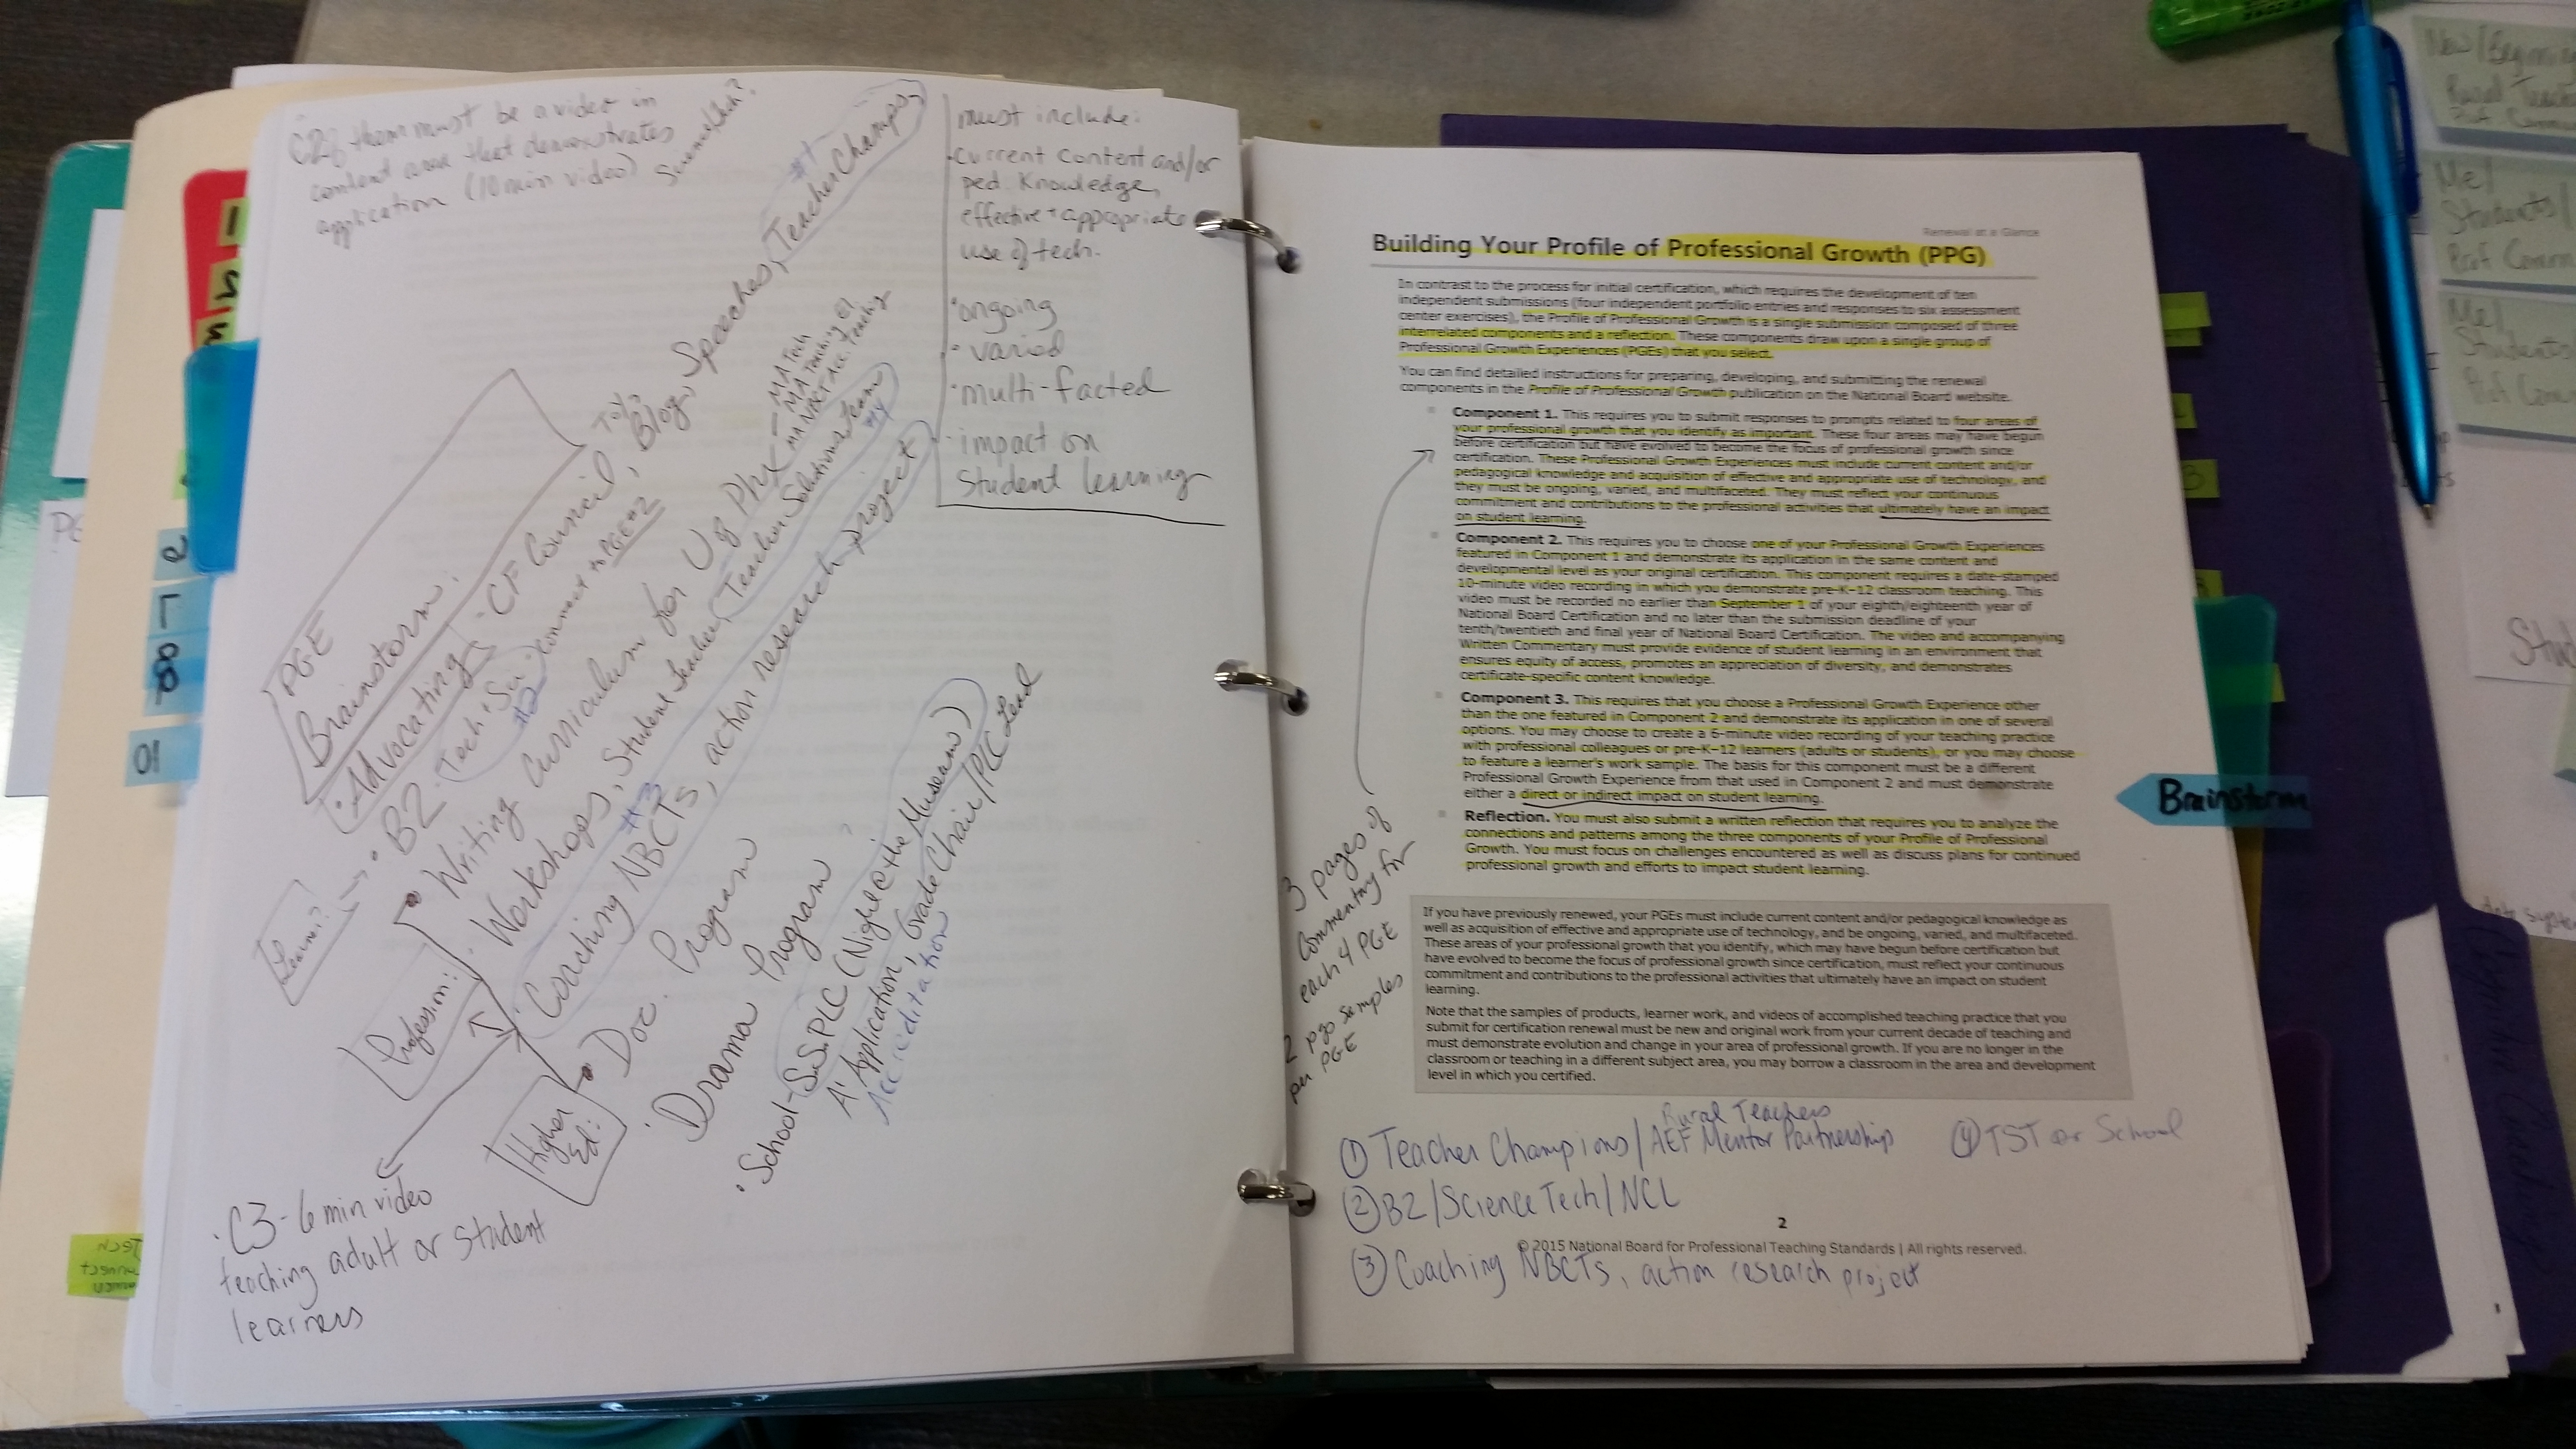 C2 of them must be a video in
content area that demonstrates
application (10 min video)
Science/tech?
must include:
· current content and/or
ped. knowledge,
effective + appropriate
use of tech.
· ongoing
· varied
· multi-facted
· impact on
student learning
PGE
Brainstorm:
· Advocating - CF Council, Blog, Speeches, Teacher Champs -
#1
· B2 - Tech + Sci - connect to PGE #2
#2
Learn?
· Writing Curriculum for U of Phx - MA Tech
- MA Teaching El.
- MA NBCT Acc. Teaching
· Workshops, Student Teacher, Teacher Solutions Team
#4
Profession:
· Coaching NBCTs, action research project
#3
· Doc. Program
Higher
Ed:
· Drama Program
· School - SS.PLC (Night @ the Museum)
A+ Application, Grade Chair/PLC Lead
Accreditation
· C3 - 6 min video
teaching adult or student
learners
Renewal at a Glance
Building Your Profile of Professional Growth (PPG)
In contrast to the process for initial certification, which requires the development of ten
independent submissions (four independent portfolio entries and responses to six assessment
center exercises), the Profile of Professional Growth is a single submission composed of three
interrelated components and a reflection. These components draw upon a single group of
Professional Growth Experiences (PGEs) that you select.
You can find detailed instructions for preparing, developing, and submitting the renewal
components in the Profile of Professional Growth publication on the National Board website.
Component 1. This requires you to submit responses to prompts related to four areas of
your professional growth that you identify as important. These four areas may have begun
before certification but have evolved to become the focus of professional growth since
certification. These Professional Growth Experiences must include current content and/or
pedagogical knowledge and acquisition of effective and appropriate use of technology, and
they must be ongoing, varied, and multifaceted. They must reflect your continuous
commitment and contributions to the professional activities that ultimately have an impact
on student learning.
Component 2. This requires you to choose one of your Professional Growth Experiences
featured in Component 1 and demonstrate its application in the same content and
developmental level as your original certification. This component requires a date-stamped
10-minute video recording in which you demonstrate pre-K–12 classroom teaching. This
video must be recorded no earlier than September 1 of your eighth/eighteenth year of
National Board Certification and no later than the submission deadline of your
tenth/twentieth and final year of National Board Certification. The video and accompanying
Written Commentary must provide evidence of student learning in an environment that
ensures equity of access, promotes an appreciation of diversity, and demonstrates
certificate-specific content knowledge.
Component 3. This requires that you choose a Professional Growth Experience other
than the one featured in Component 2 and demonstrate its application in one of several
options. You may choose to create a 6-minute video recording of your teaching practice
with professional colleagues or pre-K–12 learners (adults or students), or you may choose
to feature a learner's work sample. The basis for this component must be a different
Professional Growth Experience from that used in Component 2 and must demonstrate
either a direct or indirect impact on student learning.
Reflection. You must also submit a written reflection that requires you to analyze the
connections and patterns among the three components of your Profile of Professional
Growth. You must focus on challenges encountered as well as discuss plans for continued
professional growth and efforts to impact student learning.
If you have previously renewed, your PGEs must include current content and/or pedagogical knowledge as
well as acquisition of effective and appropriate use of technology, and be ongoing, varied, and multifaceted.
These areas of your professional growth that you identify, which may have begun before certification but
have evolved to become the focus of professional growth since certification, must reflect your continuous
commitment and contributions to the professional activities that ultimately have an impact on student
learning.
Note that the samples of products, learner work, and videos of accomplished teaching practice that you
submit for certification renewal must be new and original work from your current decade of teaching and
must demonstrate evolution and change in your area of professional growth. If you are no longer in the
classroom or teaching in a different subject area, you may borrow a classroom in the area and development
level in which you certified.
3 pages of
commentary for
each 4 PGE
2 pgs samples
per PGE
Rural Teachers
① Teacher Champions/AEF Mentor Partnership
④ TST or School
② B2/Science Tech/NCL
2
© 2015 National Board for Professional Teaching Standards | All rights reserved.
③ Coaching NBCTs, action research project
Brainstorm
New/Beginning
Rural Teach
Me/
Students/
Prof Comm
Me/
Students
Prof Com
10